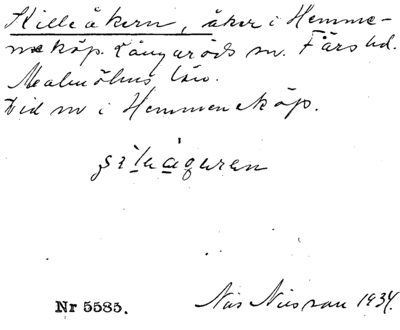 Killeåkern, åker i Hemme-
neköp. Långaröds sn. Färs hd.
Malmöhus län.
Vid nv i Hemmeneköp.
Nr 5585.
Nils Nilsson 1934.